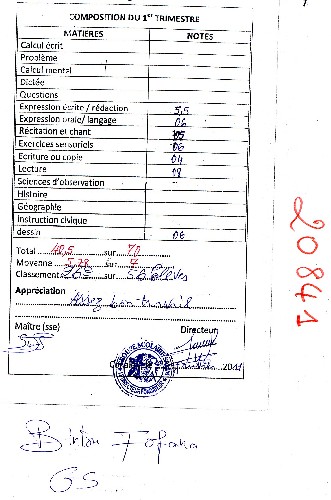 COMPOSITION DU 1er TRIMESTRE
MATIERES NOTES
Calcul écrit
Problème
Calcul mental
Dictée
Questions
Expression écrite / rédaction 5,5
Expression orale/ langage 06
Récitation et chant 05
Exercices sensoriels 06
Ecriture ou copie 04
Lecture
Sciences d'observation
Histoire
Géographie
Instruction civique
dessin 06
Total 40,5 sur 70
Moyenne sur 7
Classement sur élèves
Appréciation
Assez bon travail
Maître (sse) Directeur
2011
20841
Bintou Fofana
GS